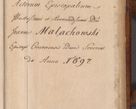 Actorum Episcopalium
Illustrissimi et Reverendissimi Dni
Joannis Małachowski
Episcopi Cracoviensis Ducis Severiae
de Anno 1697